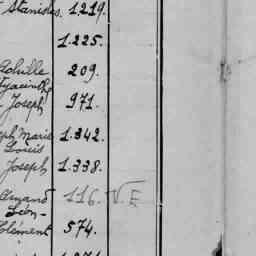 Stanislas. 1.219.
1.225.
Achille 209.
Hyacinthe
Joseph 971.
Marie 1.342.
Louis
Joseph 1.338.
Armand 116. V.E
Léon-
Clément 574.